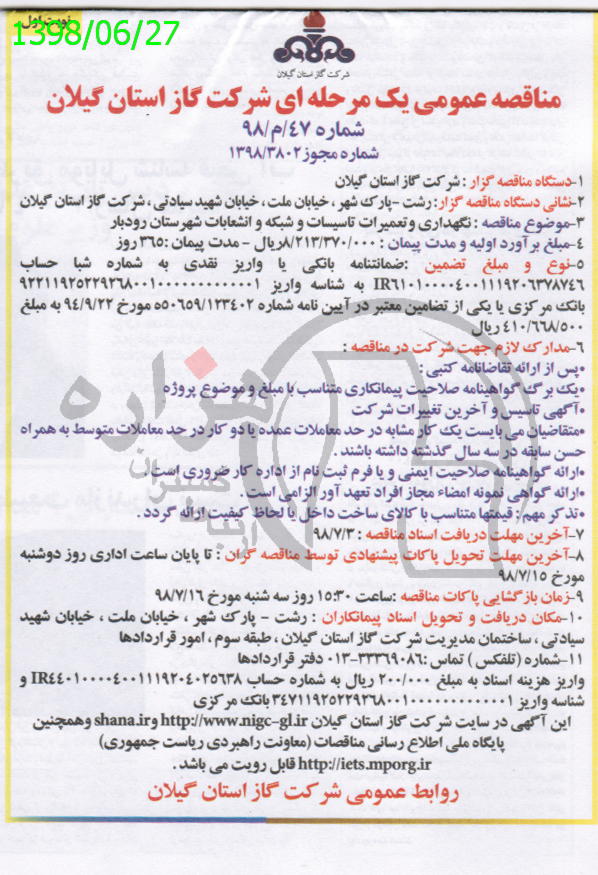 نوبت اول
1398/06/27
شرکت گاز استان گیلان
مناقصه عمومی یک مرحله ای شرکت گاز استان گیلان
شماره ۴۷/م/۹۸
شماره مجوز ۱۳۹۸/۳۸۰۲
۱-دستگاه مناقصه گزار : شرکت گاز استان گیلان
۲-نشانی دستگاه مناقصه گزار: رشت -پارک شهر ، خیابان ملت ، خیابان شهید سیادتی ، شرکت گاز استان گیلان
۳-موضوع مناقصه : نگهداری و تعمیرات تاسیسات و شبکه و انشعابات شهرستان رودبار
۴-مبلغ برآورد اولیه و مدت پیمان : ۸/۲۱۳/۳۷۰/۰۰۰ریال - مدت پیمان :۳۶۵ روز
۵-نوع و مبلغ تضمین :ضمانتنامه بانکی یا واریز نقدی به شماره شبا حساب
IR۶۱۰۱۰۰۰۰۴۰۰۱۱۱۹۲۰۶۳۷۸۷۴۶ به شناسه واریز ۹۲۲۱۱۹۲۵۲۲۹۲۶۸۰۰۱۰۰۰۰۰۰۰۰۰۰۰۱
بانک مرکزی یا یکی از تضامین معتبر در آیین نامه شماره ۱۲۳۴۰۲/ت۵۰۶۵۹ه مورخ ۹۴/۹/۲۲ به مبلغ
۴۱۰/۶۶۸/۵۰۰ ریال
۶-مدارک لازم جهت شرکت در مناقصه :
•پس از ارائه تقاضانامه کتبی :
•یک برگ گواهینامه صلاحیت پیمانکاری متناسب با مبلغ و موضوع پروژه
•آگهی تاسیس و آخرین تغییرات شرکت
•متقاضیان می بایست یک کار مشابه در حد معاملات عمده یا دو کار در حد معاملات متوسط به همراه
حسن سابقه در سه سال گذشته داشته باشند .
•ارائه گواهینامه صلاحیت ایمنی و یا فرم ثبت نام از اداره کار ضروری است .
•ارائه گواهی نمونه امضاء مجاز افراد تعهد آور الزامی است .
•تذکر مهم : قیمتها متناسب با کالای ساخت داخل با لحاظ کیفیت ارائه گردد .
۷-آخرین مهلت دریافت اسناد مناقصه : ۹۸/۷/۳
۸-آخرین مهلت تحویل پاکات پیشنهادی توسط مناقصه گران : تا پایان ساعت اداری روز دوشنبه
مورخ ۹۸/۷/۱۵
۹-زمان بازگشایی پاکات مناقصه :ساعت ۱۵:۳۰ روز سه شنبه مورخ ۹۸/۷/۱۶
۱۰-مکان دریافت و تحویل اسناد پیمانکاران : رشت - پارک شهر ، خیابان ملت ، خیابان شهید
سیادتی ، ساختمان مدیریت شرکت گاز استان گیلان ، طبقه سوم ، امور قراردادها
۱۱-شماره (تلفکس ) تماس :۳۳۳۶۹۰۸۶-۰۱۳ دفتر قراردادها
واریز هزینه اسناد به مبلغ ۲۰۰/۰۰۰ ریال به شماره حساب IR۴۴۰۱۰۰۰۰۴۰۰۱۱۱۹۲۰۴۰۲۵۶۳۸ و
شناسه واریز ۳۴۷۱۱۹۲۵۲۲۹۲۶۸۰۰۱۰۰۰۰۰۰۰۰۰۰۰۱ بانک مرکزی
این آگهی در سایت شرکت گاز استان گیلان http://www.nigc-gl.ir و shana.ir وهمچنین
پایگاه ملی اطلاع رسانی مناقصات (معاونت راهبردی ریاست جمهوری)
http://iets.mporg.ir قابل رویت می باشد .
روابط عمومی شرکت گاز استان گیلان
هزاره